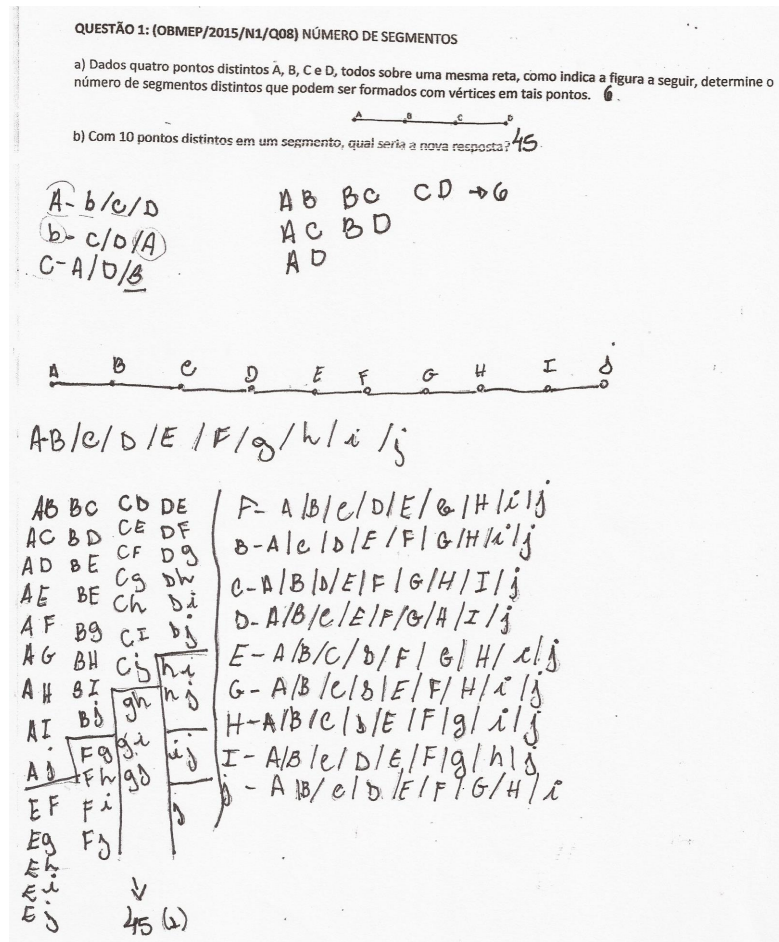 QUESTÃO 1: (OBMEP/2015/N1/Q08) NÚMERO DE SEGMENTOS
a) Dados quatro pontos distintos A, B, C e D, todos sobre uma mesma reta, como indica a figura a seguir, determine o
número de segmentos distintos que podem ser formados com vértices em tais pontos. 6.
A B C D
b) Com 10 pontos distintos em um segmento, qual seria a nova resposta? 45
A- b/c/D
b- C/D/A
C- A/D/B
AB BC CD → 6
AC BD
AD
A B C D E F G H I j
A-B/C/D/E/F/g/h/i/j
AB BC CD DE
AC BD CE DF
AD BE CF Dg
AE BE Cg Dh
AF Bg Ch Di
AG BH CI Dj
AH BI Cj hi
AI Bj gh hj
Aj Fg gi ij
EF Fh gj j
Eg Fi
Eh Fj
Ei
Ej
↓
45
F- A/B/C/D/E/G/H/i/j
B-A/C/D/E/F/G/H/i/j
C-A/B/D/E/F/G/H/I/j
D-A/B/C/E/F/G/H/I/j
E-A/B/C/D/F/G/H/i/j
G- A/B/C/D/E/F/H/i/j
H-A/B/C/D/E/F/g/i/j
I- A/B/C/D/E/F/g/h/j
j - A/B/C/D/E/F/G/H/i